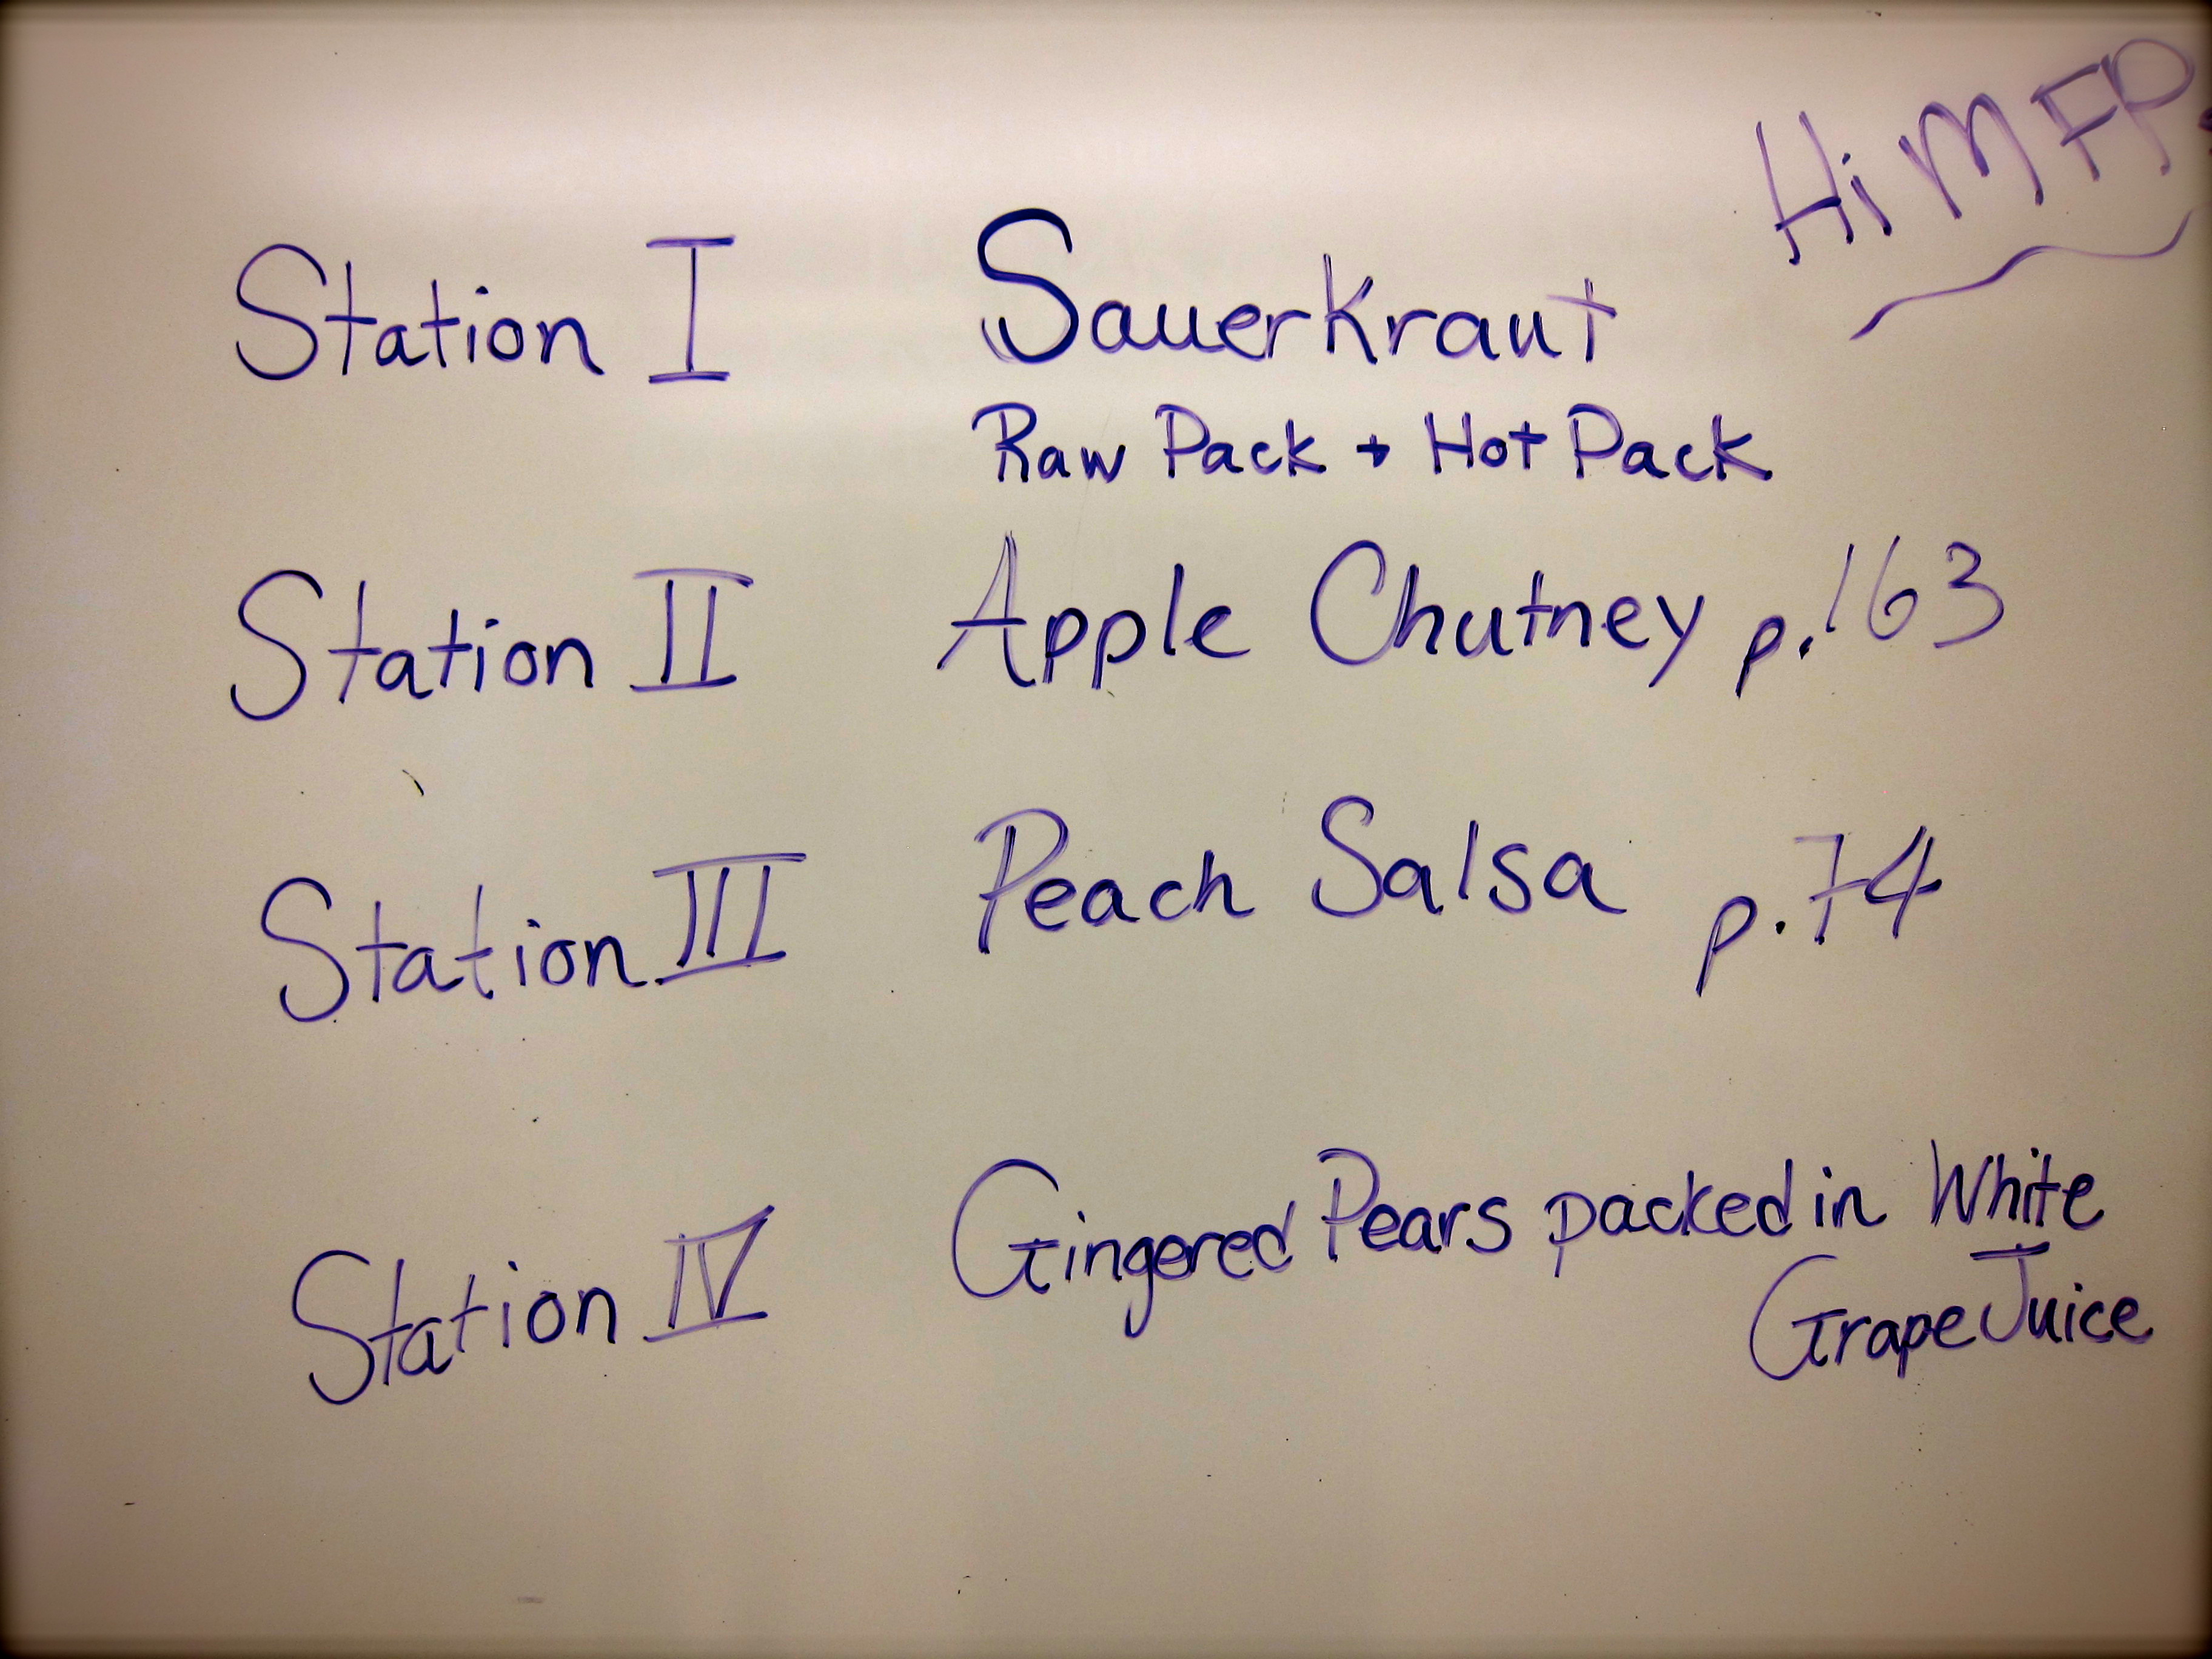 Hi MFP
Station I Sauerkraut
Raw Pack + Hot Pack
Station II Apple Chutney p.163
Station III Peach Salsa p.74
Station IV Gingered Pears packed in White
Grape Juice